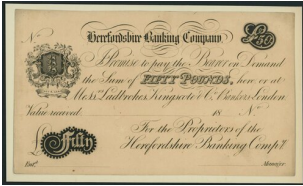 No
Herefordshire Banking Company,
£50
I Promise to pay the Bearer on Demand
the Sum of FIFTY POUNDS, here or at
Messrs. Ladbrokes, Kingscote & Co. Bankers London
Value received. 18 No
£ Fifty
For the Proprietors of the
Herefordshire Banking Compy.
Entd.
Manager